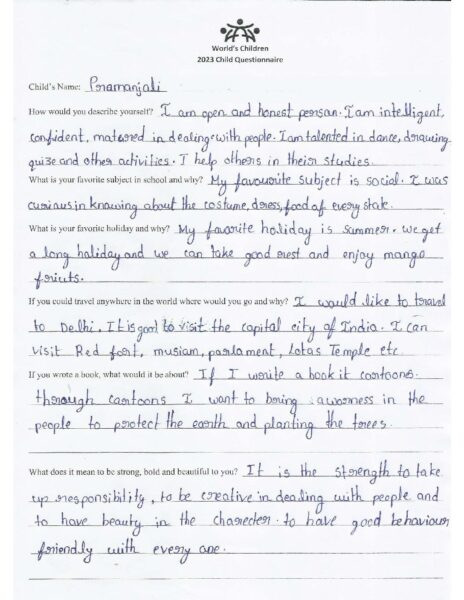 World's Children
2023 Child Questionnaire
Child's Name: Pramanjali
How would you describe yourself? I am open and honest person. I am intelligent,
confident, matured in dealing with people. I am talented in dance, drawing
quize and other activities. I help others in their studies.
What is your favorite subject in school and why? My favourite subject is social. I was
curious in knowing about the costume, dress, food of every state.
What is your favorite holiday and why? My favorite holiday is summer. we get
a long holiday and we can take good rest and enjoy mango
friuts.
If you could travel anywhere in the world where would you go and why? I would like to travel
to Delhi. It is good to visit the capital city of India. I can
visit Red fort, musium, parlament, Lotas Temple etc.
If you wrote a book, what would it be about? If I write a book it cartoons.
thorough cartoons I want to bring awarness in the
people to protect the earth and planting the trees.
What does it mean to be strong, bold and beautiful to you? It is the strength to take
up responsibility, to be creative in dealing with people and
to have beauty in the charecter. to have good behaviour
friendly with every one.